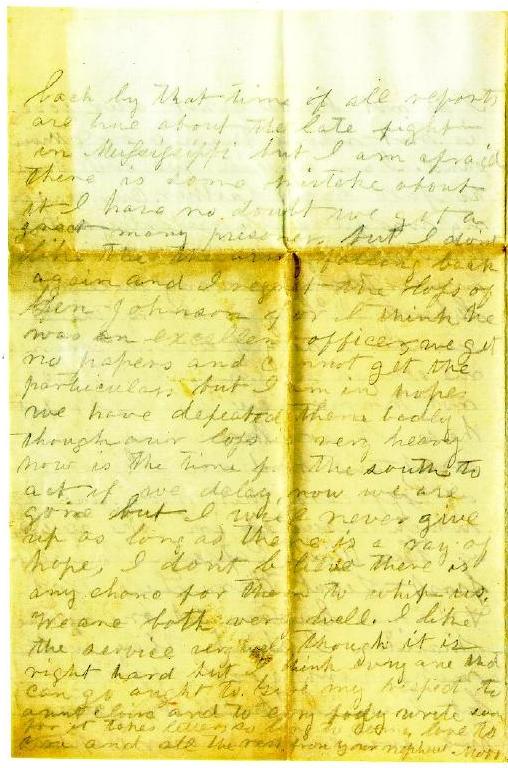 back by that time if all reports
are true about the late fight
in Mississippi but I am afraid
there is some mistake about
it I have no doubt we got a
great many prisoners but I don't
like the army falling back
again and I regret the loss of
Gen Johnson for I think he
was an excellent officer we get
no papers and cannot get the
particulars but I am in hopes
we have defeated them badly
though our loss is very heavy
now is the time for the south to
act if we delay now we are
gone but I will never give
up as long as there is a ray of
hope, I don't believe there is
any chanc for them to whip us.
We are both very well. I like
the service very well though it is
right hard but I think every one that
can go ought to. Give my respect to
aunt and to every body write soon
for it takes letters so long to come love to
and all the rest from your nephew